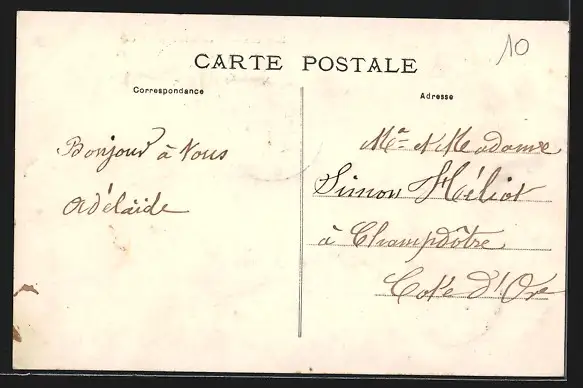 10
CARTE POSTALE
Correspondance
Adresse
Bonjour à Vous
Adélaïde
Mr et Madame
Simon Héliot
à Champdôtre
Cote d'Or